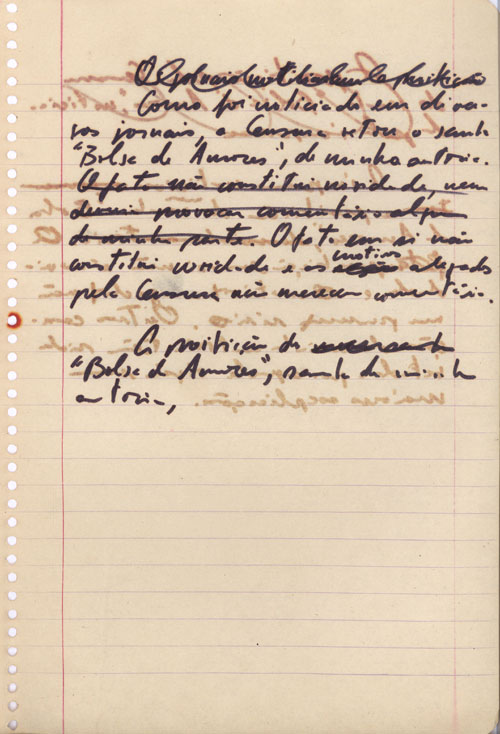 Como foi noticiado em diver-
sos jornais, a Censura vetou o samba
"Bolsa de Amores", de minha autoria.
O fato não constitui novidade, nem
devia provocar comentário algum
de minha parte. O fato em si não
motivos
constitui novidade e os alegados
pela Censura não merecem comentário.
A proibição de
"Bolsa de Amores", samba de minha
autoria,